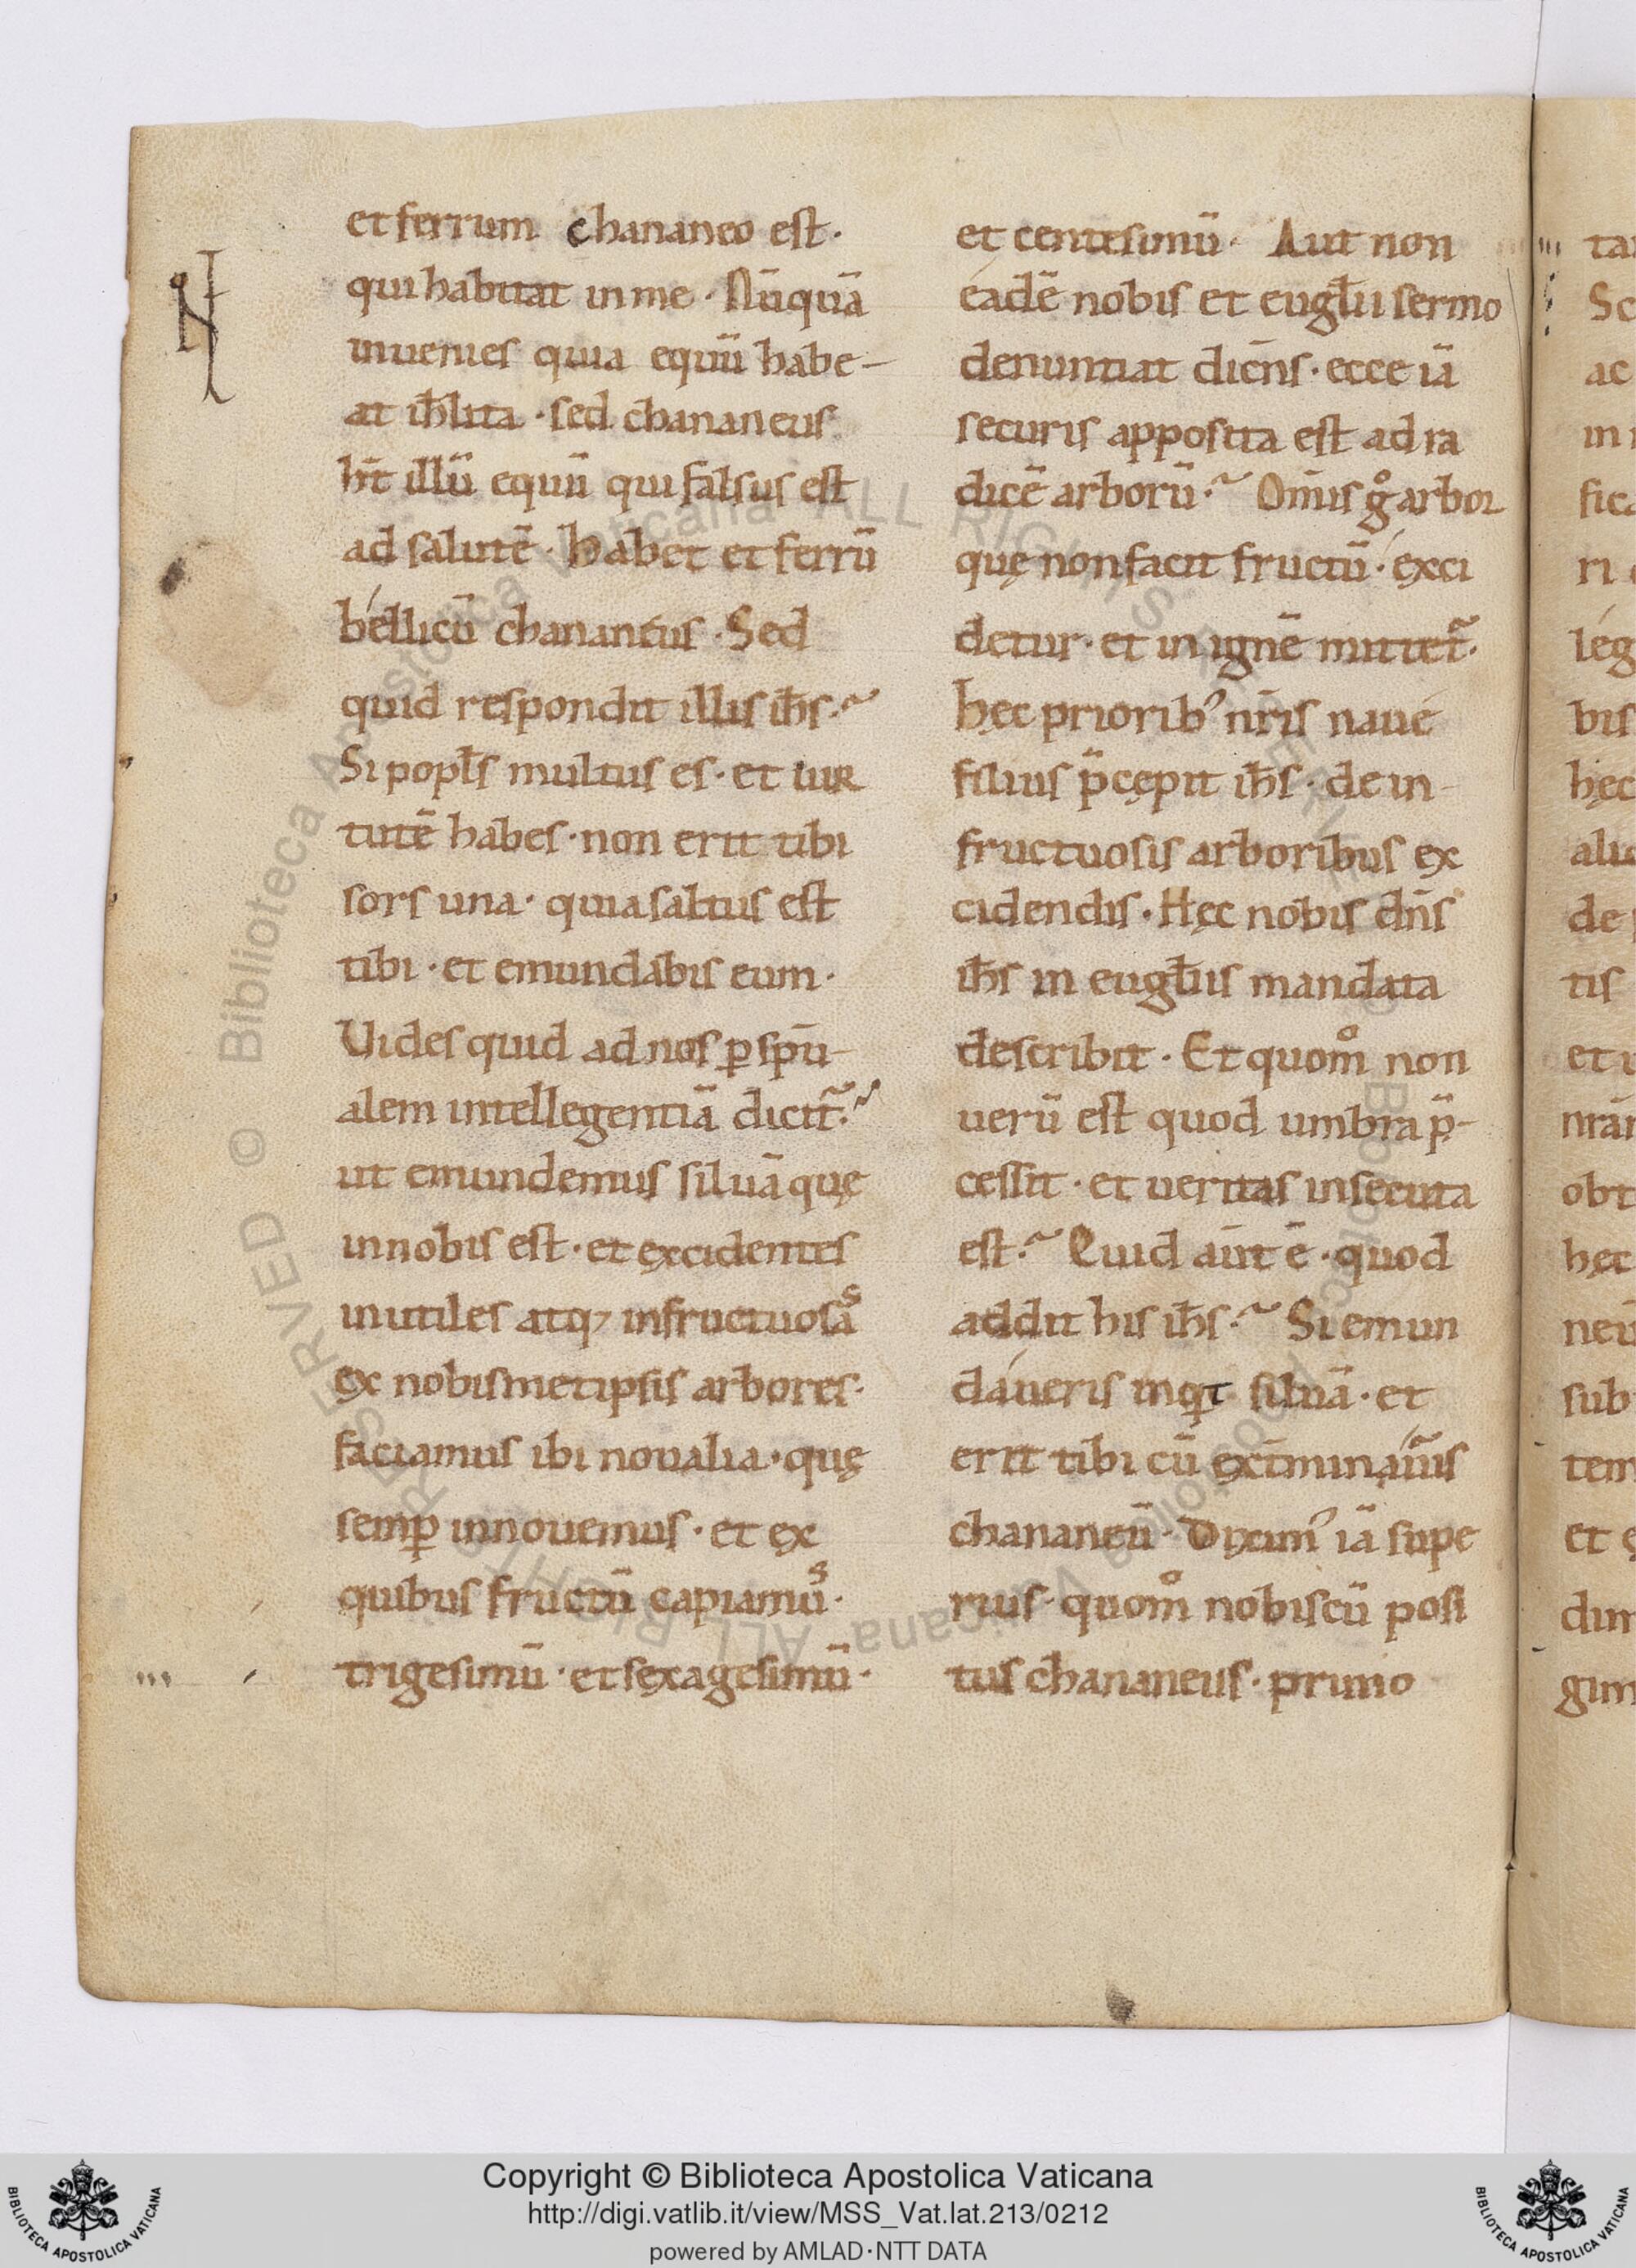 et ferrum chananeo est·
qui habitat in me · Nūquā
inuenies quia equū habe-
at ih̄lita · sed chananeus
h̄t illū equū qui falsus est
ad salutē · habet et ferrū
bellicū chananeus · Sed
quid respondit illis ih̄s·~
Si popl̄s multus es · et uir
tutē habes · non erit tibi
sors una · quia saltus est
tibi · et emundabis eum ·
Uides quid ad nos ꝑ spūi-
alem intellegentiā dicit̃·~
ut emundemus siluā quę
in nobis est · et excidentes
inutiles atq; infructuosaˢ
ex nobismetipsis arbores·
faciamus ibi noualia · quę
semꝑ innouemus · et ex
quibus fructū capiamuˢ·
trigesimū · et sexagesimū ·
et centesimū · Aut non
eadē nobis et eugl̄ii sermo
denuntiat dicēns · ecce iā
securis apposita est ad ra
dicē arborū·~ Om̄is gͦ arbor
quę non facit fructū · exci
detur · et in ignē mittet̃·
hęc priorib' nr̄is naue
filius p̄cępit ih̄s · de in-
fructuosis arboribus ex
cidendis · Hęc nobis dn̄s
ih̄s in eugl̄iis mandata
describit · Et quom̊ non
uerū est quod umbra p̄-
cessit · et ueritas insecuta
est·~ Quid aūt ē · quod
addit his ih̄s·~ Si emun
daueris inqt siluā · et
erit tibi cū extminau̅is
chananeū · Dixim' iā supe
rius · quom̊ nobiscū posi
tus chananeus · primo
tar
Sc
ac
in
fica
ri
leg
bis
hęc
alic
de
tis
et
nrar
obt
hęc
neū
sub
tem
et
dim
gim
© Biblioteca Apostolica Vaticana ALL RIGHTS RESERVED
© Biblioteca Apostolica Vaticana ALL RIGHTS RESERVED
Copyright © Biblioteca Apostolica Vaticana
http://digi.vatlib.it/view/MSS_Vat.lat.213/0212
powered by AMLAD·NTT DATA
BIBLIOTECA APOSTOLICA VATICANA
BIBLIOTECA APOSTOLICA VATICANA